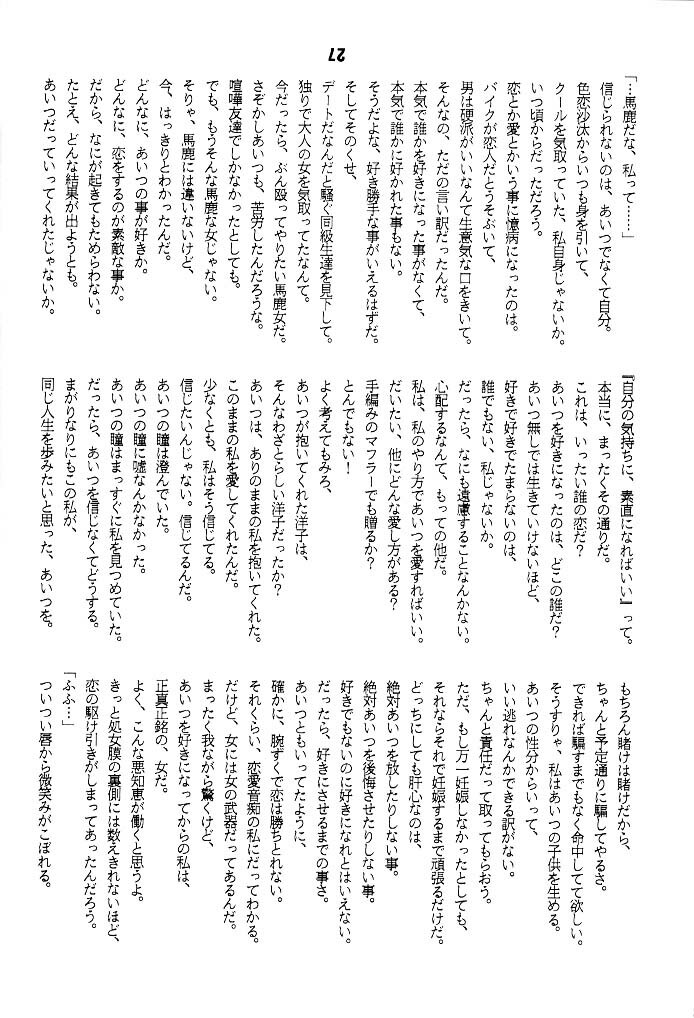 27
「…馬鹿だな、私って……」
信じられないのは、あいつでなくて自分。
色恋沙汰からいつも身を引いて、
クールを気取っていた、私自身じゃないか。
いつ頃からだっただろう。
恋とか愛とかいう事に憶病になったのは。
バイクが恋人だとうそぶいて、
男は硬派がいいなんて生意気な口をきいて。
そんなの、ただの言い訳だったんだ。
本気で誰かを好きになった事がなくて、
本気で誰かに好かれた事もない。
そうだよな、好き勝手な事がいえるはずだ。
そしてそのくせ、
デートだなんだと騒ぐ同級生達を見下して。
独りで大人の女を気取ってたなんて。
今だったら、ぶん殴ってやりたい馬鹿女だ。
さぞかしあいつも、苦労したんだろうな。
喧嘩友達でしかなかったとしても。
でも、もうそんな馬鹿な女じゃない。
そりゃ、馬鹿には違いないけど、
今、はっきりとわかったんだ。
どんなに、あいつの事が好きか。
どんなに、恋をするのが素敵な事か。
だから、なにが起きてもためらわない。
たとえ、どんな結果が出ようとも。
あいつだっていってくれたじゃないか。
『自分の気持ちに、素直になればいい』って。
本当に、まったくその通りだ。
これは、いったい誰の恋だ?
あいつを好きになったのは、どこの誰だ?
あいつ無しでは生きていけないほど、
好きで好きでたまらないのは、
誰でもない、私じゃないか。
だったら、なにも遠慮することなんかない。
心配するなんて、もっての他だ。
私は、私のやり方であいつを愛すればいい。
だいたい、他にどんな愛し方がある?
手編みのマフラーでも贈るか?
とんでもない!
よく考えてもみろ、
あいつが抱いてくれた洋子は、
そんなわざとらしい洋子だったか?
あいつは、ありのままの私を抱いてくれた。
このままの私を愛してくれたんだ。
少なくとも、私はそう信じてる。
信じたいんじゃない。信じてるんだ。
あいつの瞳は澄んでいた。
あいつの瞳に嘘なんかなかった。
あいつの瞳はまっすぐに私を見つめていた。
だったら、あいつを信じなくてどうする。
まがりなりにもこの私が、
同じ人生を歩みたいと思った、あいつを。
もちろん賭けは賭けだから、
ちゃんと予定通りに騙してやるさ。
できれば騙すまでもなく命中してて欲しい。
そうすりゃ、私はあいつの子供を生める。
あいつの性分からいって、
いい逃れなんかできる訳がない。
ちゃんと責任だって取ってもらおう。
ただ、もし万一妊娠しなかったとしても、
それならそれで妊娠するまで頑張るだけだ。
どっちにしても肝心なのは、
絶対あいつを放したりしない事。
絶対あいつを後悔させたりしない事。
好きでもないのに好きになれとはいえない。
だったら、好きにさせるまでの事さ。
あいつともいってたように、
確かに、腕ずくで恋は勝ちとれない。
それくらい、恋愛音痴の私にだってわかる。
だけど、女には女の武器だってあるんだ。
まったく我ながら驚くけど、
あいつを好きになってからの私は、
正真正銘の、女だ。
よく、こんな悪知恵が働くと思うよ。
きっと処女膜の裏側には数えきれないほど、
恋の駆け引きがしまってあったんだろう。
「ふふ…」
ついつい唇から微笑みがこぼれる。